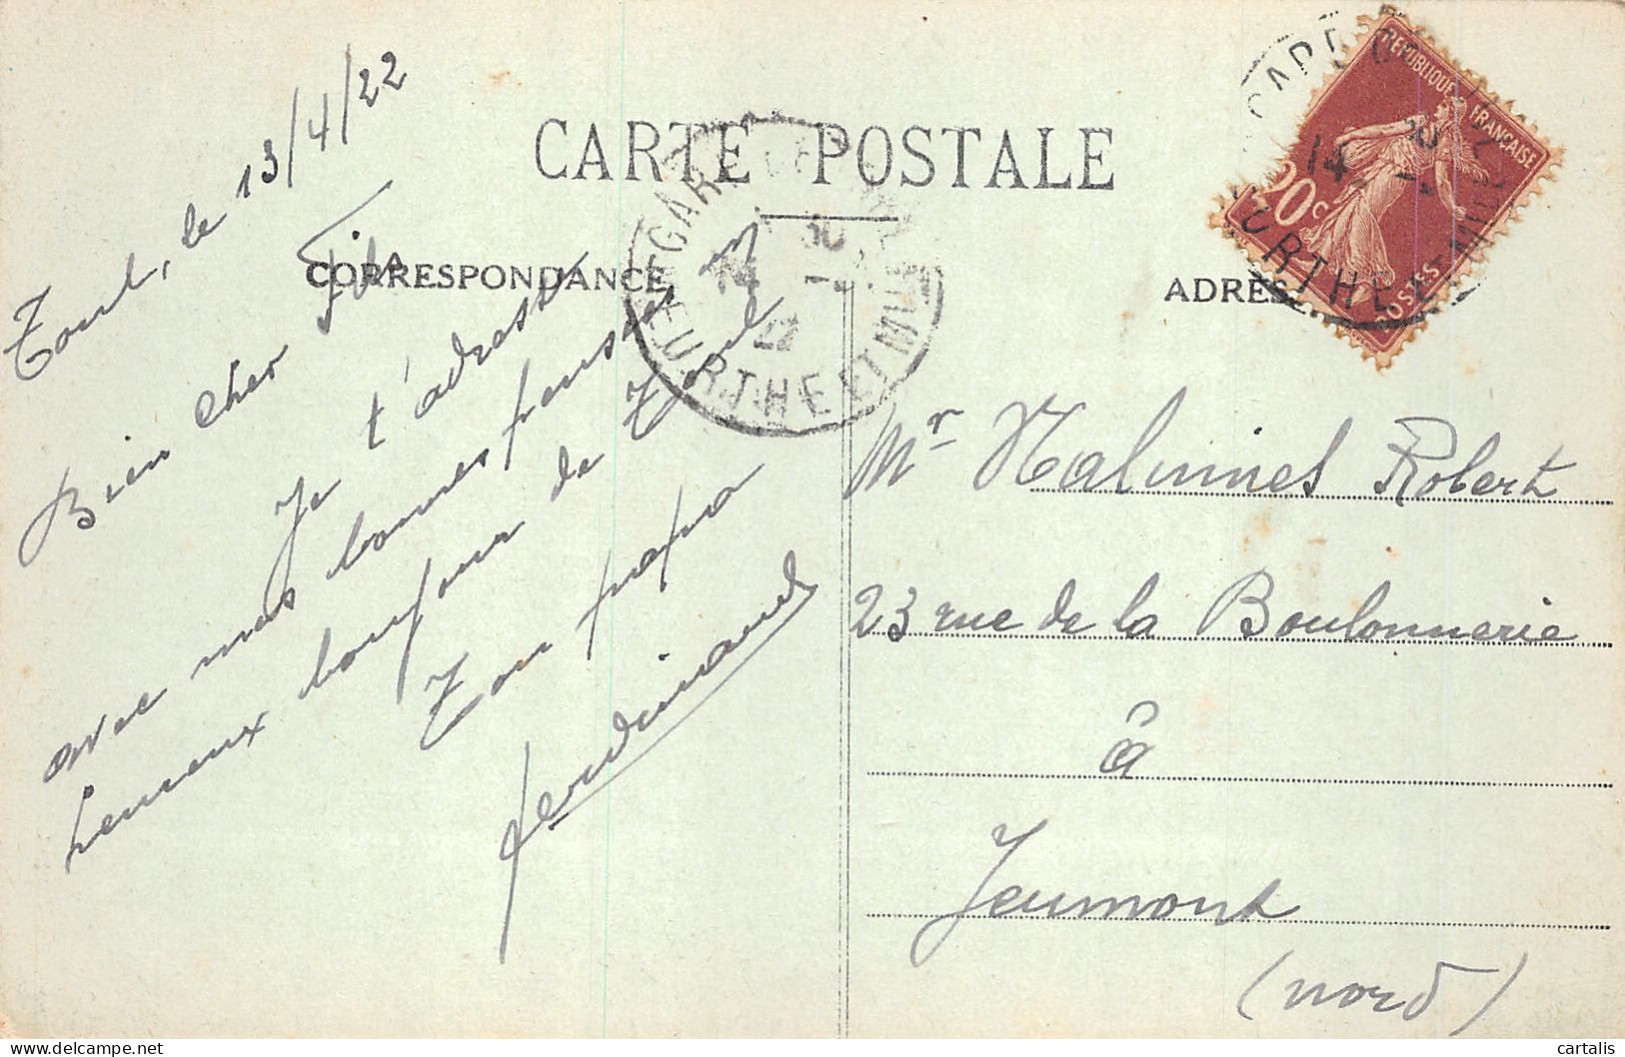 CARTE POSTALE
CORRESPONDANCE
ADRESSE
RÉPUBLIQUE FRANÇAISE
20c
POSTES
GARE DE TOUL
14
22
MEURTHE ET M
Toul, le 13/4/22
Bien cher Fils
Je t'adresse
avec mes bonnes pensées un
heureux bonjour de Toul
Ton papa
Ferdinand
Mr Robert
23 rue de la Boulonnerie
à
Jeumont
(nord)
cartalis